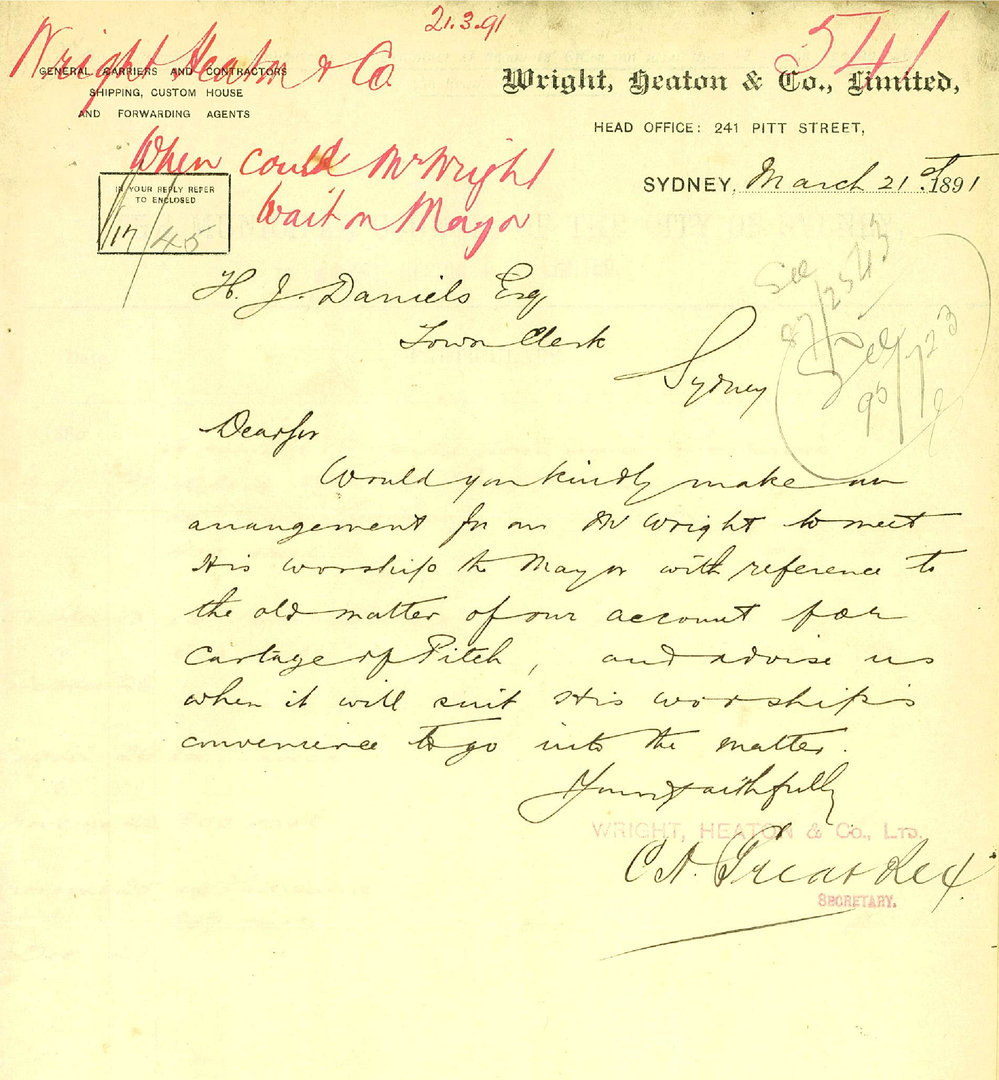 21.3.91
541
Wright Heaton & Co.
GENERAL CARRIERS AND CONTRACTORS
SHIPPING, CUSTOM HOUSE
AND FORWARDING AGENTS
Wright, Heaton & Co., Limited,
HEAD OFFICE: 241 PITT STREET,
When could Mr Wright
Wait on Mayor
SYDNEY, March 21st 1891
IN YOUR REPLY REFER
TO ENCLOSED
17/45
See
87/2543
See
90/1723
H. J. Daniels Esq
Town Clerk
Sydney
Dear Sir
Would you kindly make an
arrangement for our Mr Wright to meet
His worship the Mayor with reference to
the old matter of our account for
Cartage of Pitch, and advise us
when it will suit His worship's
convenience to go into the matter.
Yours faithfully
WRIGHT, HEATON & Co., LTD.
C A.
SECRETARY.